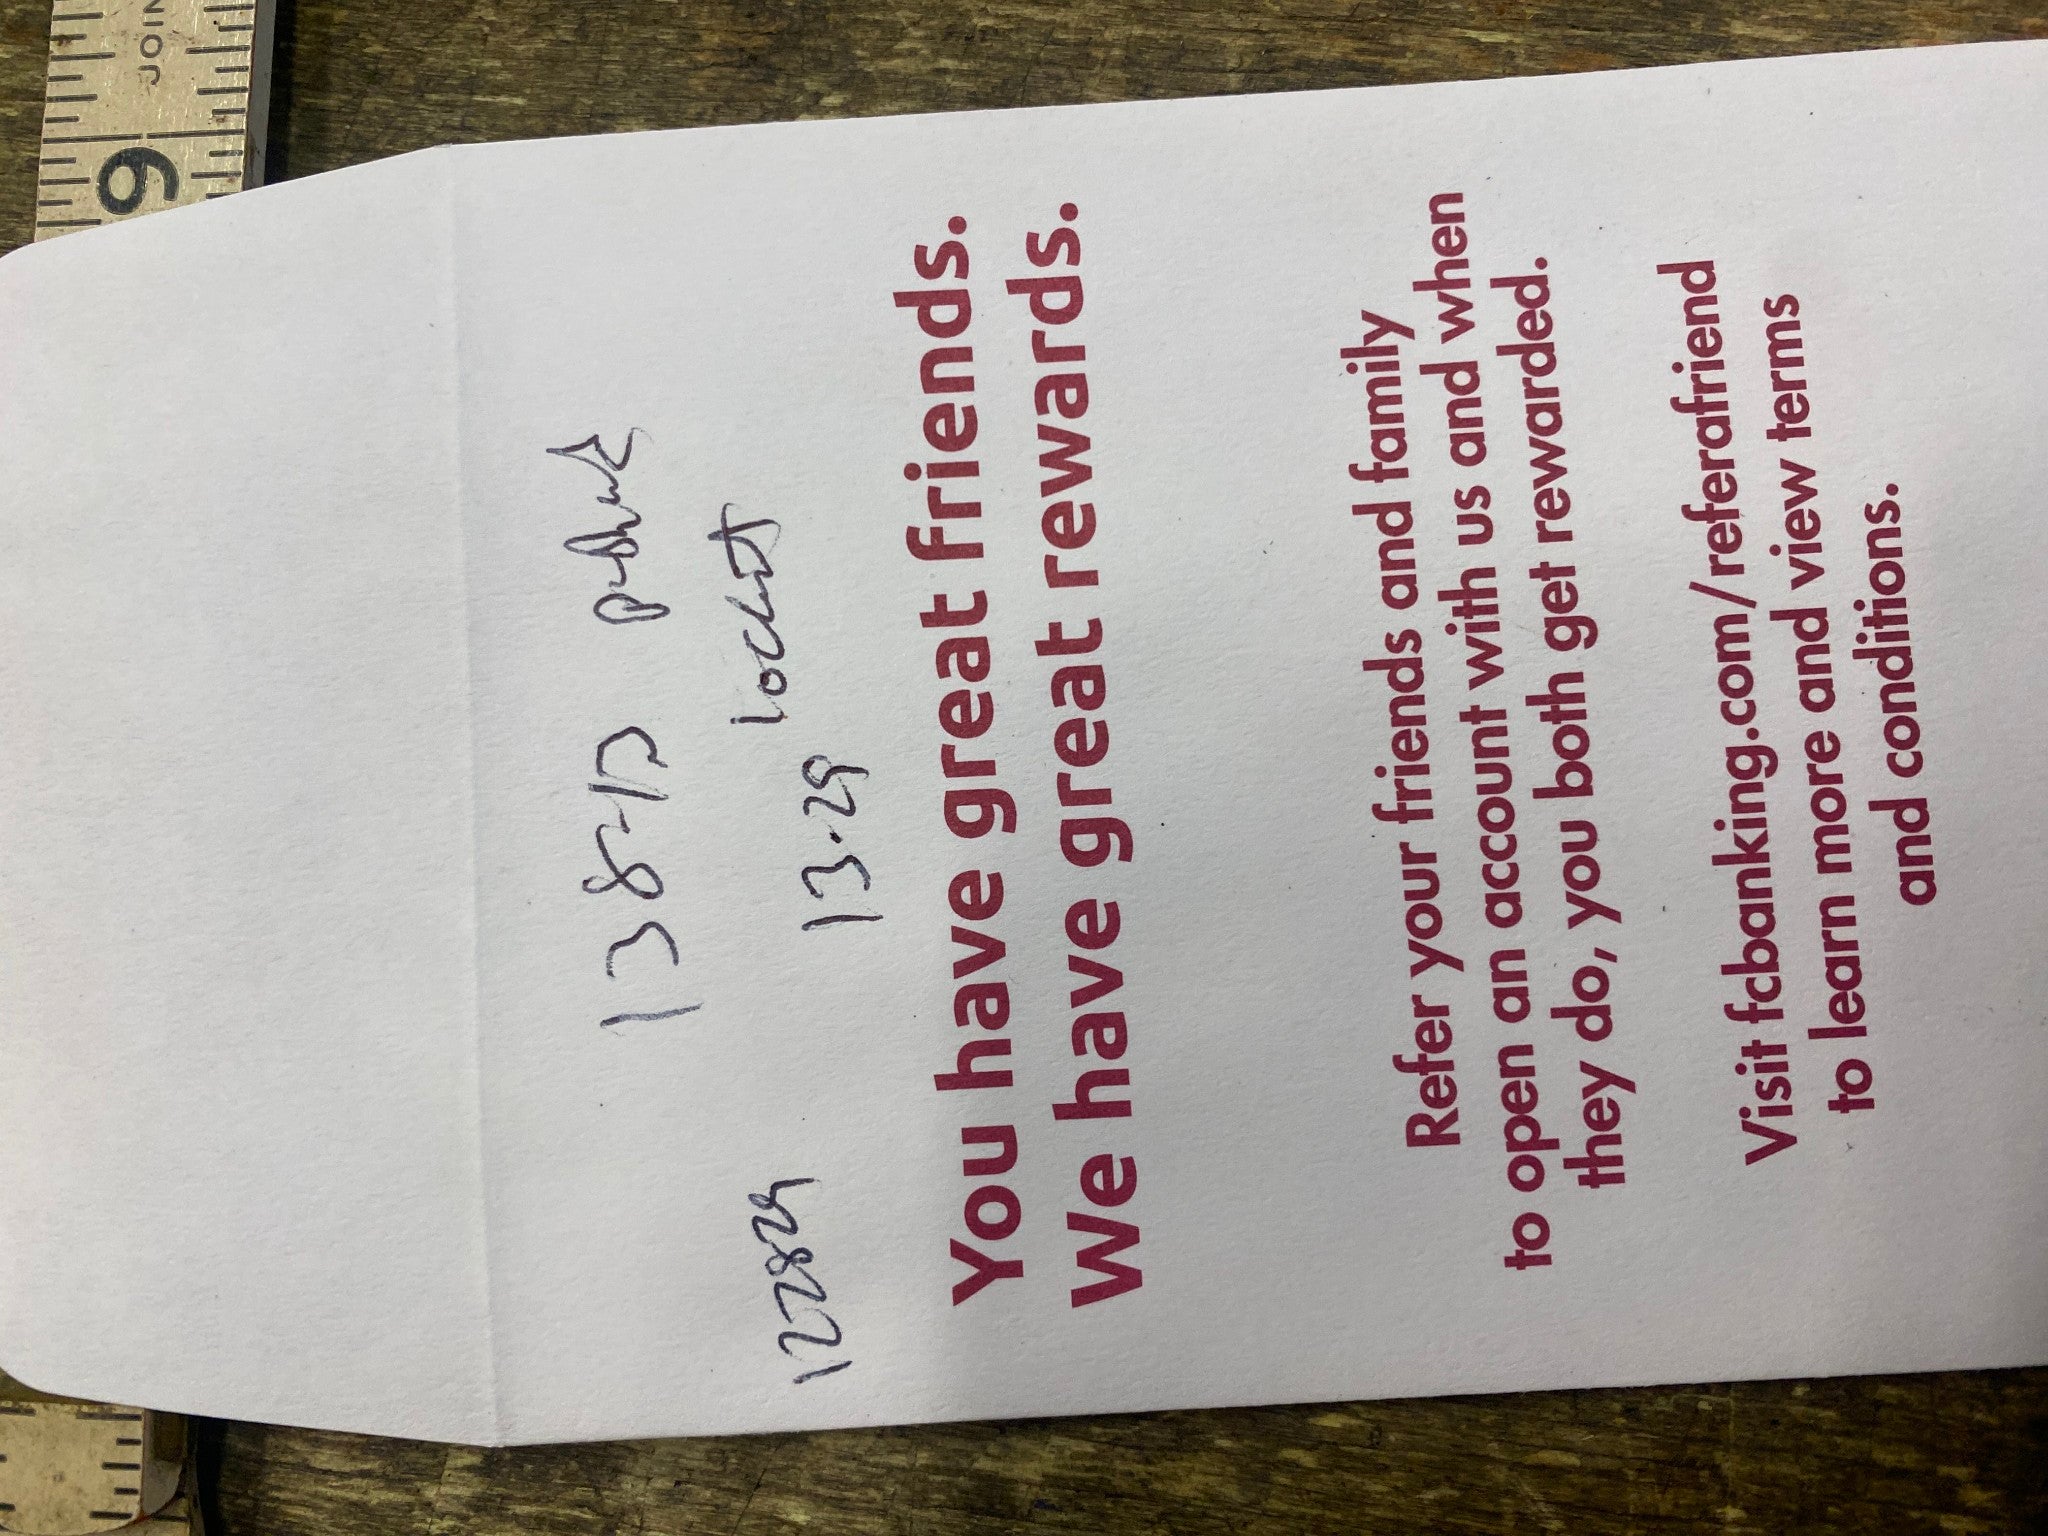 9
JOIN
138
13.29
You have great friends.
We have great rewards.
Refer your friends and family
to open an account with us and when
they do, you both get rewarded.
Visit fcbanking.com/referafriend
to learn more and view terms
and conditions.